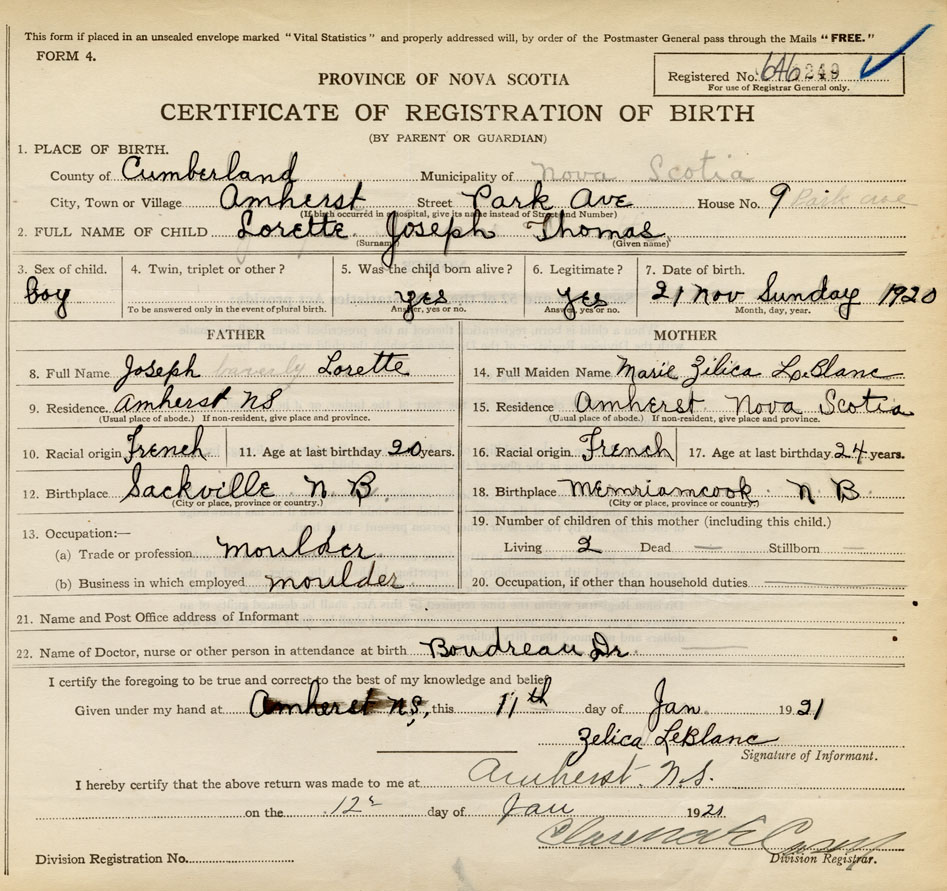 This form if placed in an unsealed envelope marked "Vital Statistics" and properly addressed will, by order of the Postmaster General pass through the Mails "FREE."
FORM 4.
Registered No. 646249
For use of Registrar General only.
PROVINCE OF NOVA SCOTIA
CERTIFICATE OF REGISTRATION OF BIRTH
(BY PARENT OR GUARDIAN)
1. PLACE OF BIRTH.
County of Cumberland Municipality of Nova Scotia
City, Town or Village Amherst Street Park Ave House No. 9 Park ave
(If birth occurred in a hospital, give its name instead of Street and Number)
2. FULL NAME OF CHILD Lorette Joseph Thomas
(Surname) (Given name)
3. Sex of child. 4. Twin, triplet or other? 5. Was the child born alive? 6. Legitimate? 7. Date of birth.
boy yes yes 21 Nov Sunday 1920
To be answered only in the event of plural birth. Answer, yes or no. Answer, yes or no. Month, day, year.
FATHER MOTHER
8. Full Name Joseph Lorette 14. Full Maiden Name Marie Zilica LeBlanc
9. Residence. Amherst NS 15. Residence Amherst Nova Scotia
(Usual place of abode.) If non-resident, give place and province. (Usual place of abode.) If non-resident, give place and province.
10. Racial origin French 11. Age at last birthday 20 years. 16. Racial origin French 17. Age at last birthday 24 years.
12. Birthplace Sackville N B 18. Birthplace Memriamcook N B
(City or place, province or country.) (City or place, province or country.)
13. Occupation:— 19. Number of children of this mother (including this child.)
(a) Trade or profession moulder Living 2 Dead — Stillborn —
(b) Business in which employed moulder 20. Occupation, if other than household duties
21. Name and Post Office address of Informant
22. Name of Doctor, nurse or other person in attendance at birth Boudreau Dr
I certify the foregoing to be true and correct to the best of my knowledge and belief.
Given under my hand at Amherst NS, this 11th day of Jan 1921
Zelica LeBlanc
Signature of Informant.
I hereby certify that the above return was made to me at Amherst. N.S.
on the 12 day of Jan 1921
Division Registration No. Division Registrar.